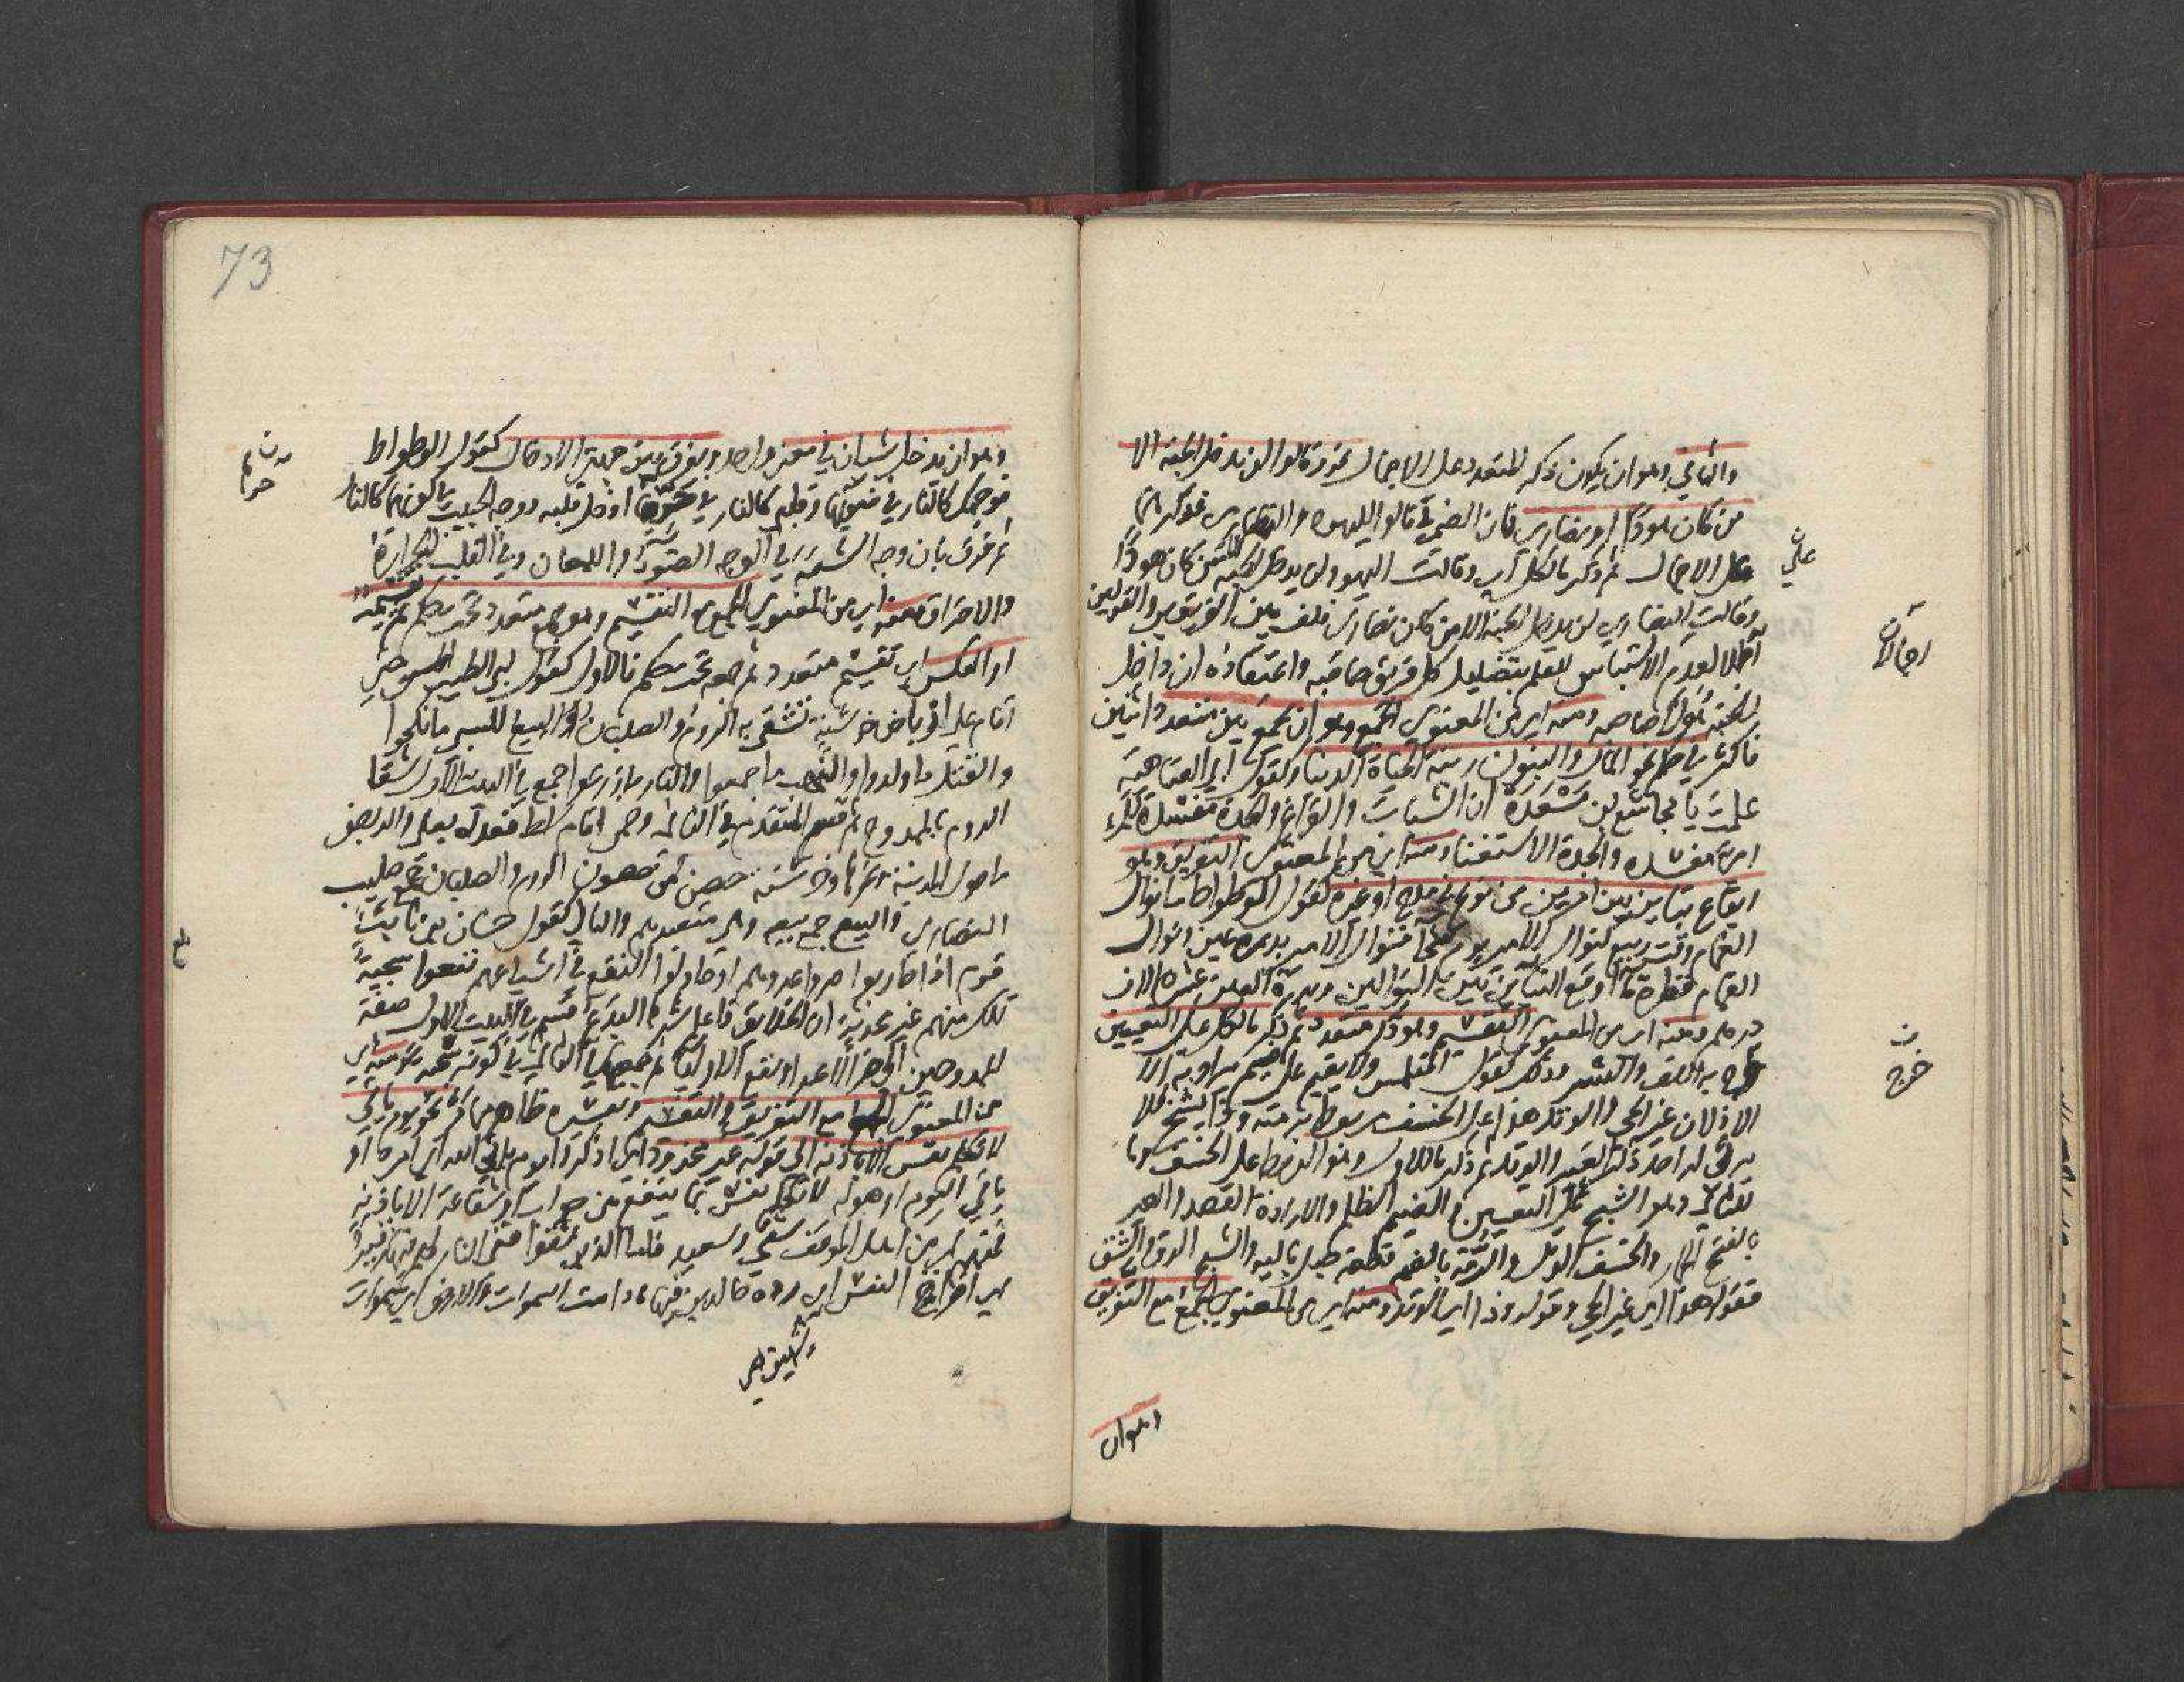 والثاني وهو ان يكون ذكر المتعدد على الاجمال نحو وقالوا لن يدخل الجنة الا
من كان هودا او نصارى فان الضمير في قالوا لليهود والنصارى فذكر
على الاجمال ثم ذكر ما لكل اي وقالت اليهود لن يدخل الجنة الا من كان هودًا
وقالت النصارى لن يدخل الجنة الا من كان نصارى فلف بين الفريقين او القولين
اجمالا لعدم الالتباس للعلم بتضليل كل فريق صاحبه واعتقاده ان داخل
الجنة هو لا صاحبه ومنه اي من المعنوي الجمع وهو ان يجمع بين متعدد اثنين
فاكثر في حكم نحو المال والبنون زينة الحياة الدنيا وكقول ابي العتاهية
علمت يا مجاشع بن مسعدة ان الشباب والفراغ والجدة مفسدة للمرء
اي مفسدة والجدة الاستغناء ومنه اي من المعنوي التفريق وهو
ايقاع تباين بين امرين من نوع في مدح او غيره كقول الوطواط ما نوال
الغمام وقت ربيع كنوال الامير يوم سخاء فنوال الامير بدرة عين ونوال
الغمام قطرة ماء اوقع التباين بين النوالين وبدرة العين عشرة الاف
درهم ومنه اي من المعنوي التقسيم وهو ذكر متعدد ثم ذكر ما لكل على التعيين
خرج به اللف والنشر وذلك كقول المتلمس ولا يقيم على ضيم يراد به الا
الاذلان عير الحي والوتد هذا على الخسف مربوط برمته وذا يشج فلا
يرثي له احد ذكر العير والوتد ثم ذكر ما للاول وهو الربط على الخسف وما
للثاني وهو الشج على التعيين الضيم الظلم والارادة القصد والعير
بالفتح الحمار والخسف الذل والرمة بالضم قطعة حبل بالية والشج الدق والشق
فقوله هذا اي عير الحي وقوله وذا اي الوتد ومنه اي من المعنوي الجمع مع التفريق
وهو ان
ن
علي
اجمالا
ن
خرج
73
وهو ان يدخل شيئان في معنى واحد ويفرق بين جهتي الادخال كقول الوطواط
فوجهك كالنار في ضوئها وقلبي كالنار في حرها ادخل قلبه ووجه الحبيب في كونهما كالنار
ثم فرق بان وجه الشبه في الوجه الضوء واللمعان وفي القلب الحرارة
والاحتراق ومنه اي من المعنوي الجمع مع التقسيم وهو جمع متعدد تحت حكم ثم تقسيمه
او العكس اي تقسيم متعدد ثم جمعه تحت حكم فالاول كقول ابي الطيب
اقام على ارباض خرشنة تشقى به الروم والصلبان والبيع للسبي ما نكحوا
والقتل ما ولدوا والنهب ما جمعوا والنار ما زرعوا جمع في البيت الاول شقاء
الروم بالممدوح ثم قسم المتقدم في الثاني وضمن اقام سلط فتعدى بعلى والربض
ما حول المدينة وخرشنة حصن من حصون الروم والصلبان جمع صليب
النصارى والبيع جمع بيعه وهي متعبدهم والثاني كقول حسان بن ثابت
قوم اذا حاربوا ضروا عدوهم او حاولوا النفع في اشياعهم نفعوا سجية
تلك منهم غير محدثة ان الخلائق فاعلم شرها البدع قسم في البيت الاول صفة
الممدوحين الى ضر الاعداء ونفع الاولياء ثم جمعها في الثاني في كونه سجية ومنه اي
من المعنوي الجمع مع التفريق والتقسيم وتفسيره ظاهر مما مر نحو يوم ياتي
لا تكلم نفس الا باذنه الى قوله غير مجذوذ اي اذكروا يوم ياتي الله اي امره او
ياتي اليوم اي هوله لا تكلم نفس بما ينفع من جواب او شفاعة الا باذنه
فمنهم اي من اهل الموقف شقي وسعيد فاما الذين شقوا ففي النار لهم فيها زفير
اي اخراج النفس اي رده خالدين فيها ما دامت السموات والارض اي سموات
وشهيق اي
حرها